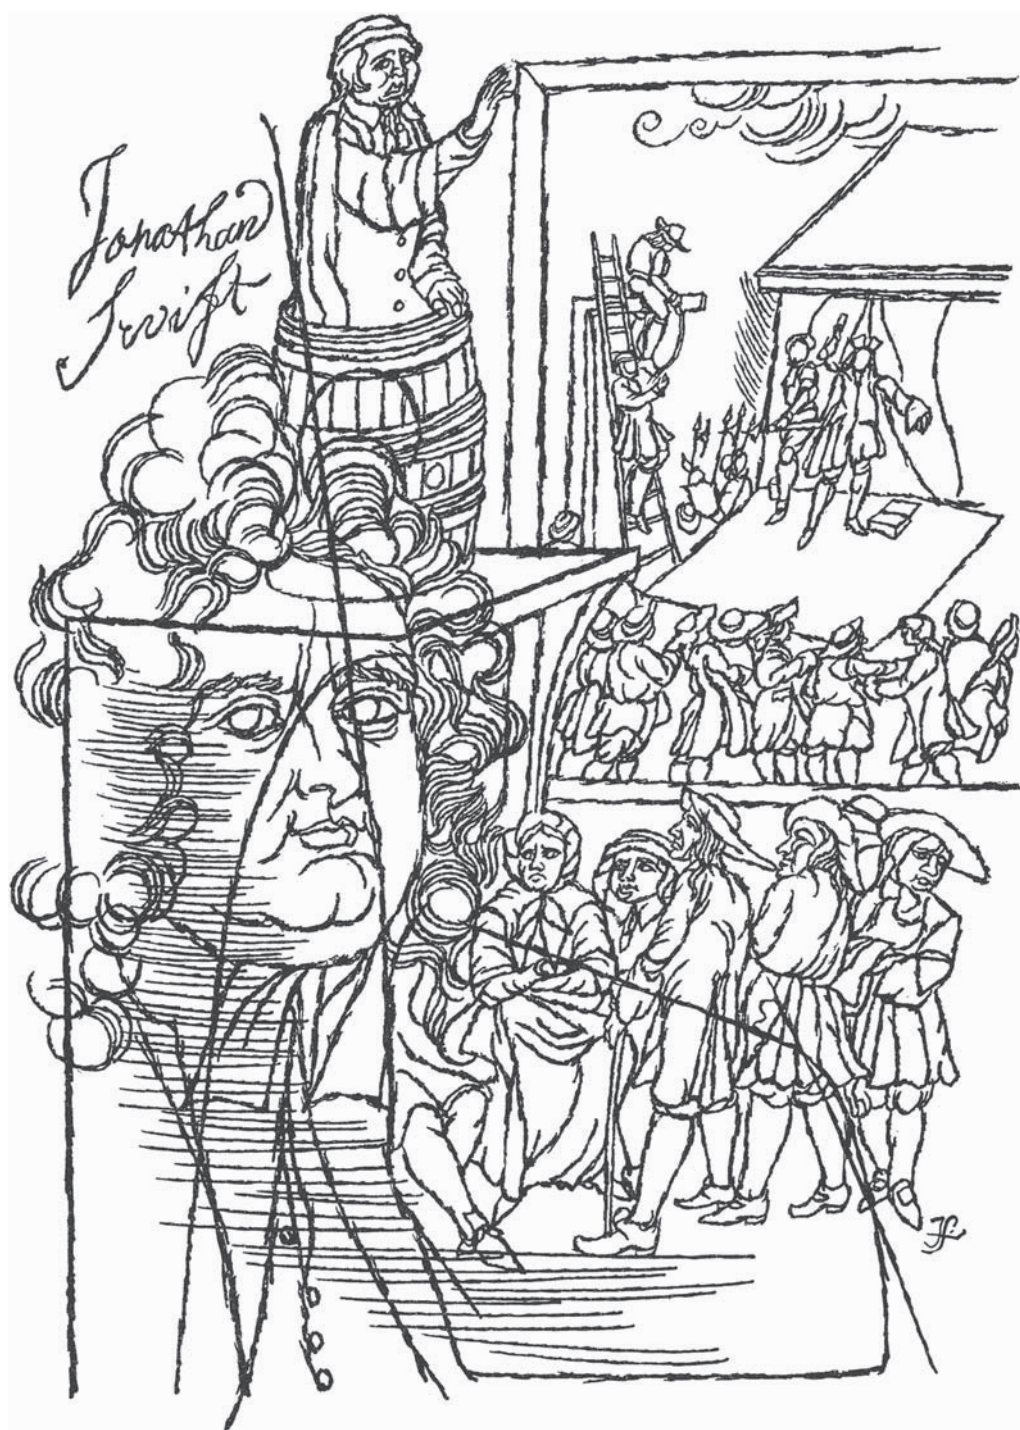 Jonathan
Swift